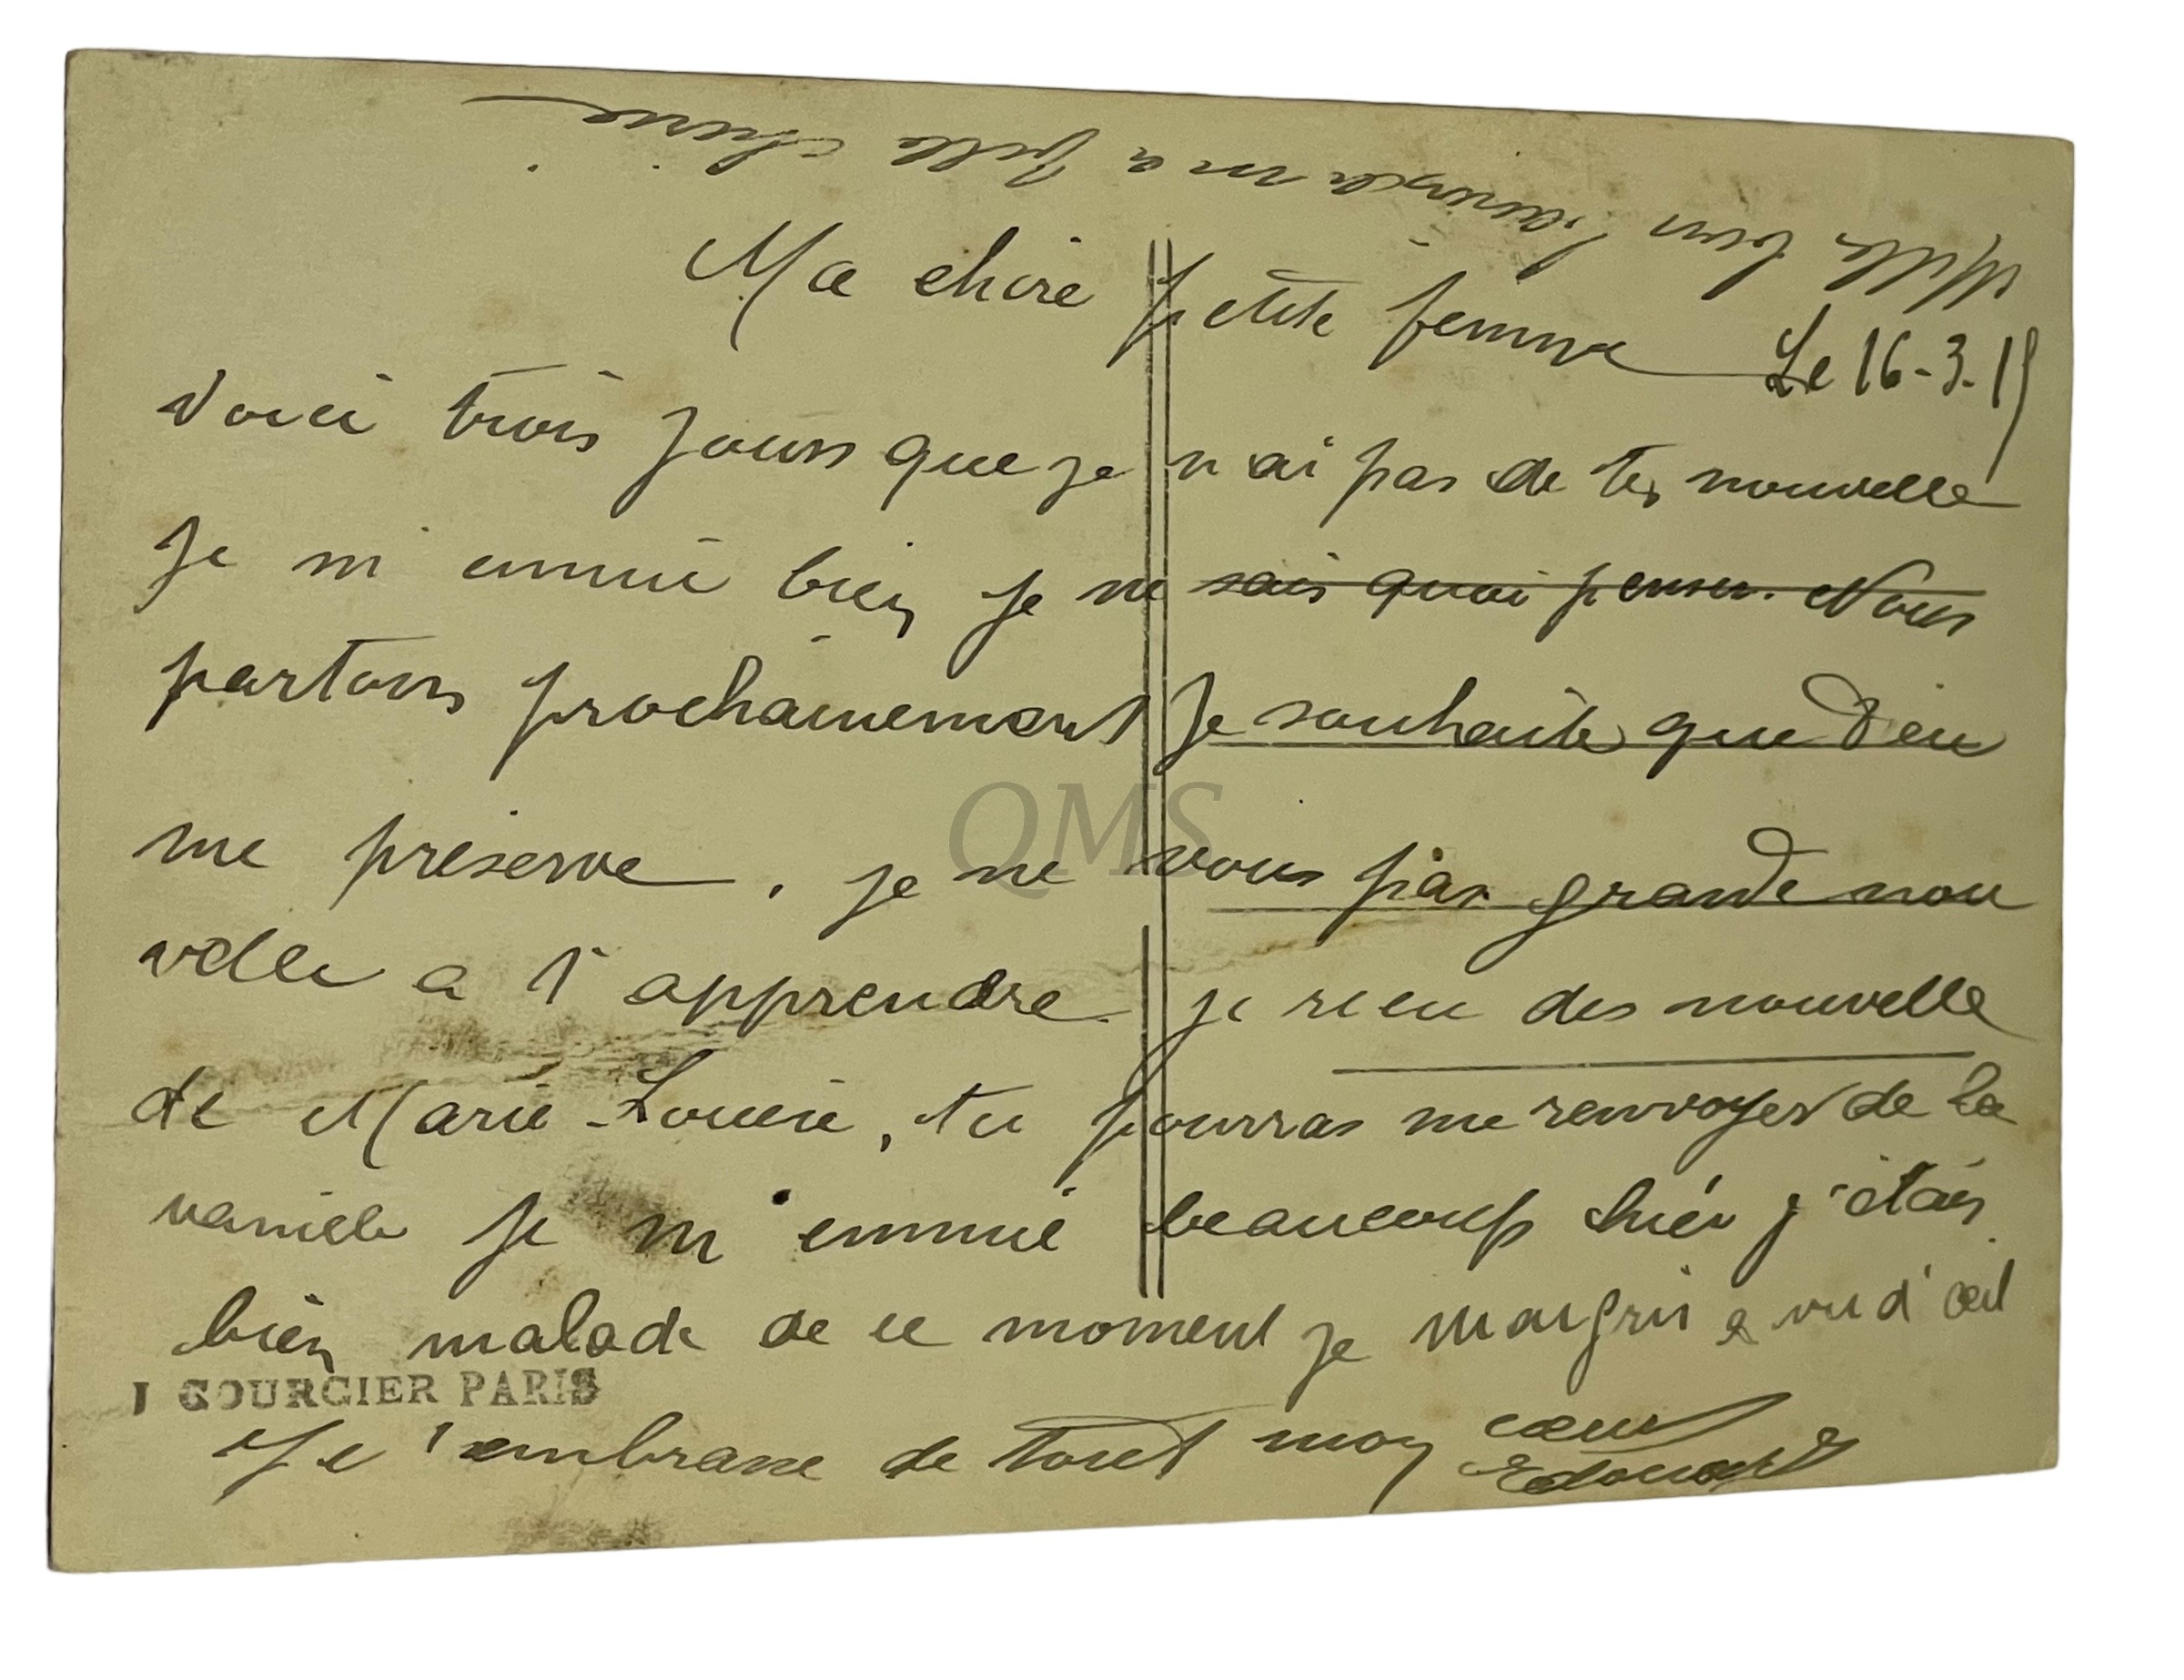 Mille bon baiser de ma fille chérie
Ma chère petite femme Le 16-3-15
Voici trois jours que je n ai pas de tes nouvelle
Je m ennui bien je ne sais quoi penser. Nous
partons prochainement Je souhaite que Dieu
me préserve. je ne vous pas grande nou
velle a t apprendre. je rien des nouvelle
de Marie-Louise, tu pourras me renvoyer de la
vaniele je m'ennuie beaucoup hier j'étais
bien malade de ce moment je maigris a vu d'œil
I GOURCIER PARIS
Je t'embrasse de tout mon cœur
Edouard
QMS